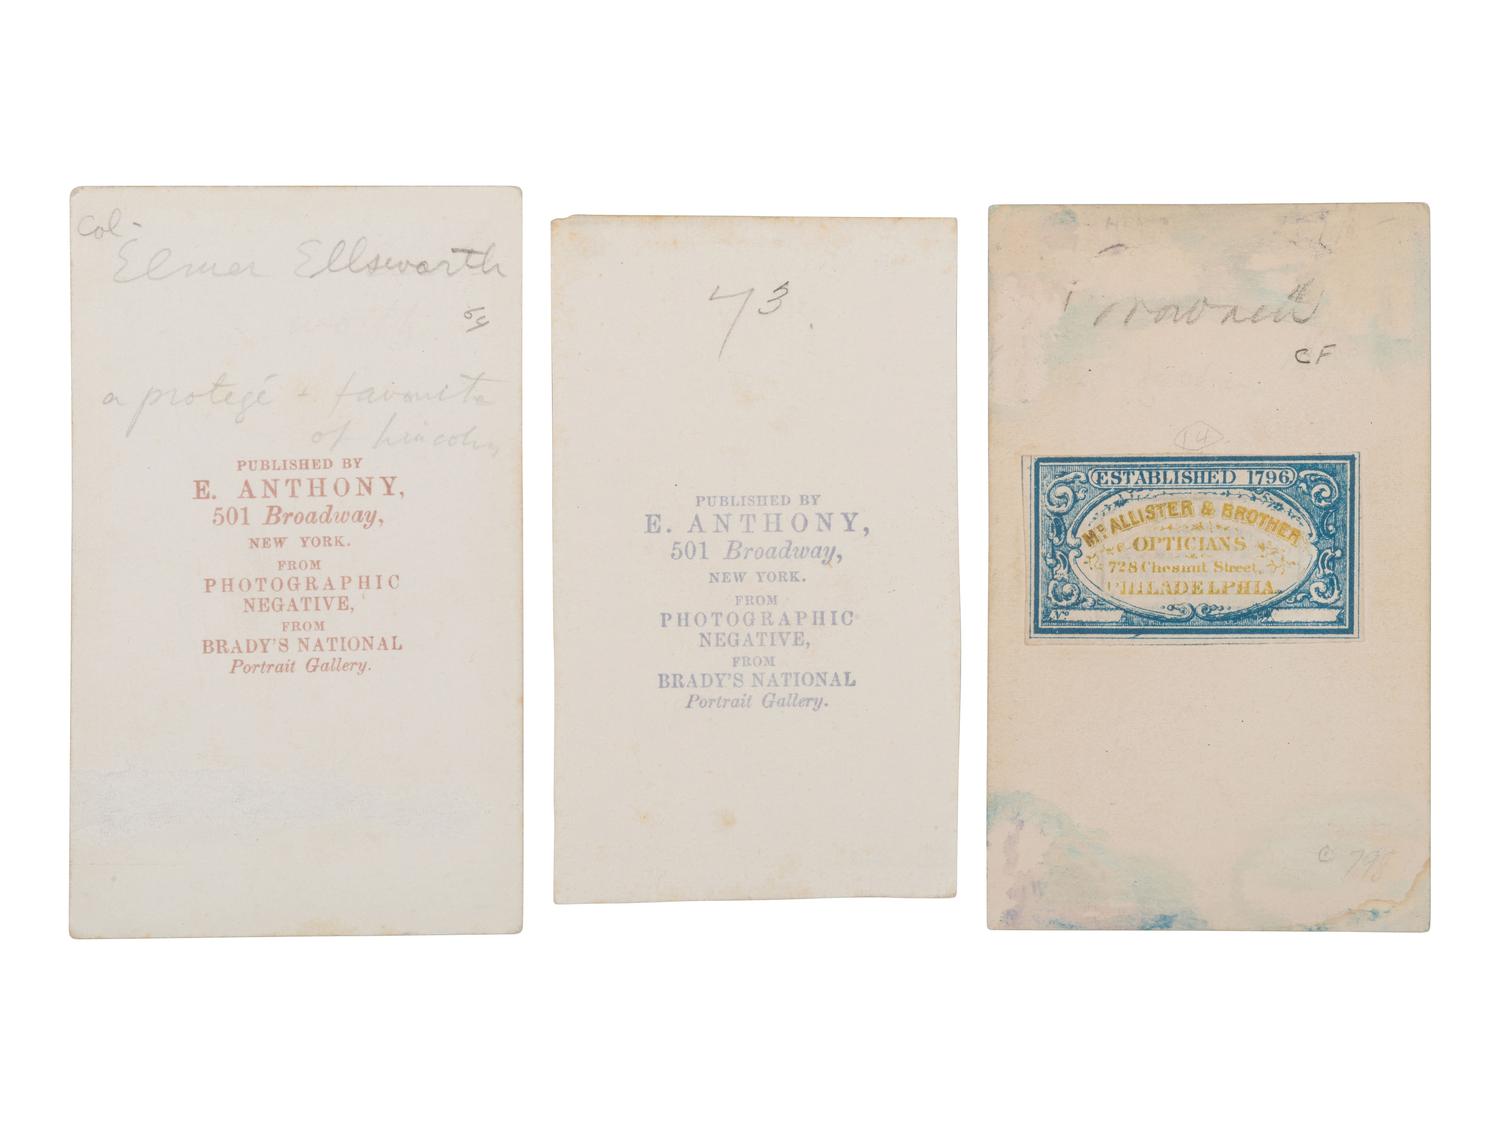 Col-
Elmer Ellsworth
a protegé + favorite
of Lincoln
PUBLISHED BY
E. ANTHONY,
501 Broadway,
NEW YORK.
FROM
PHOTOGRAPHIC
NEGATIVE,
FROM
BRADY'S NATIONAL
Portrait Gallery.
73
PUBLISHED BY
E. ANTHONY,
501 Broadway,
NEW YORK.
FROM
PHOTOGRAPHIC
NEGATIVE,
FROM
BRADY'S NATIONAL
Portrait Gallery.
CF
14
ESTABLISHED 1796
Mc ALLISTER & BROTHER
OPTICIANS
728 Chesnut Street,
PHILADELPHIA.
No